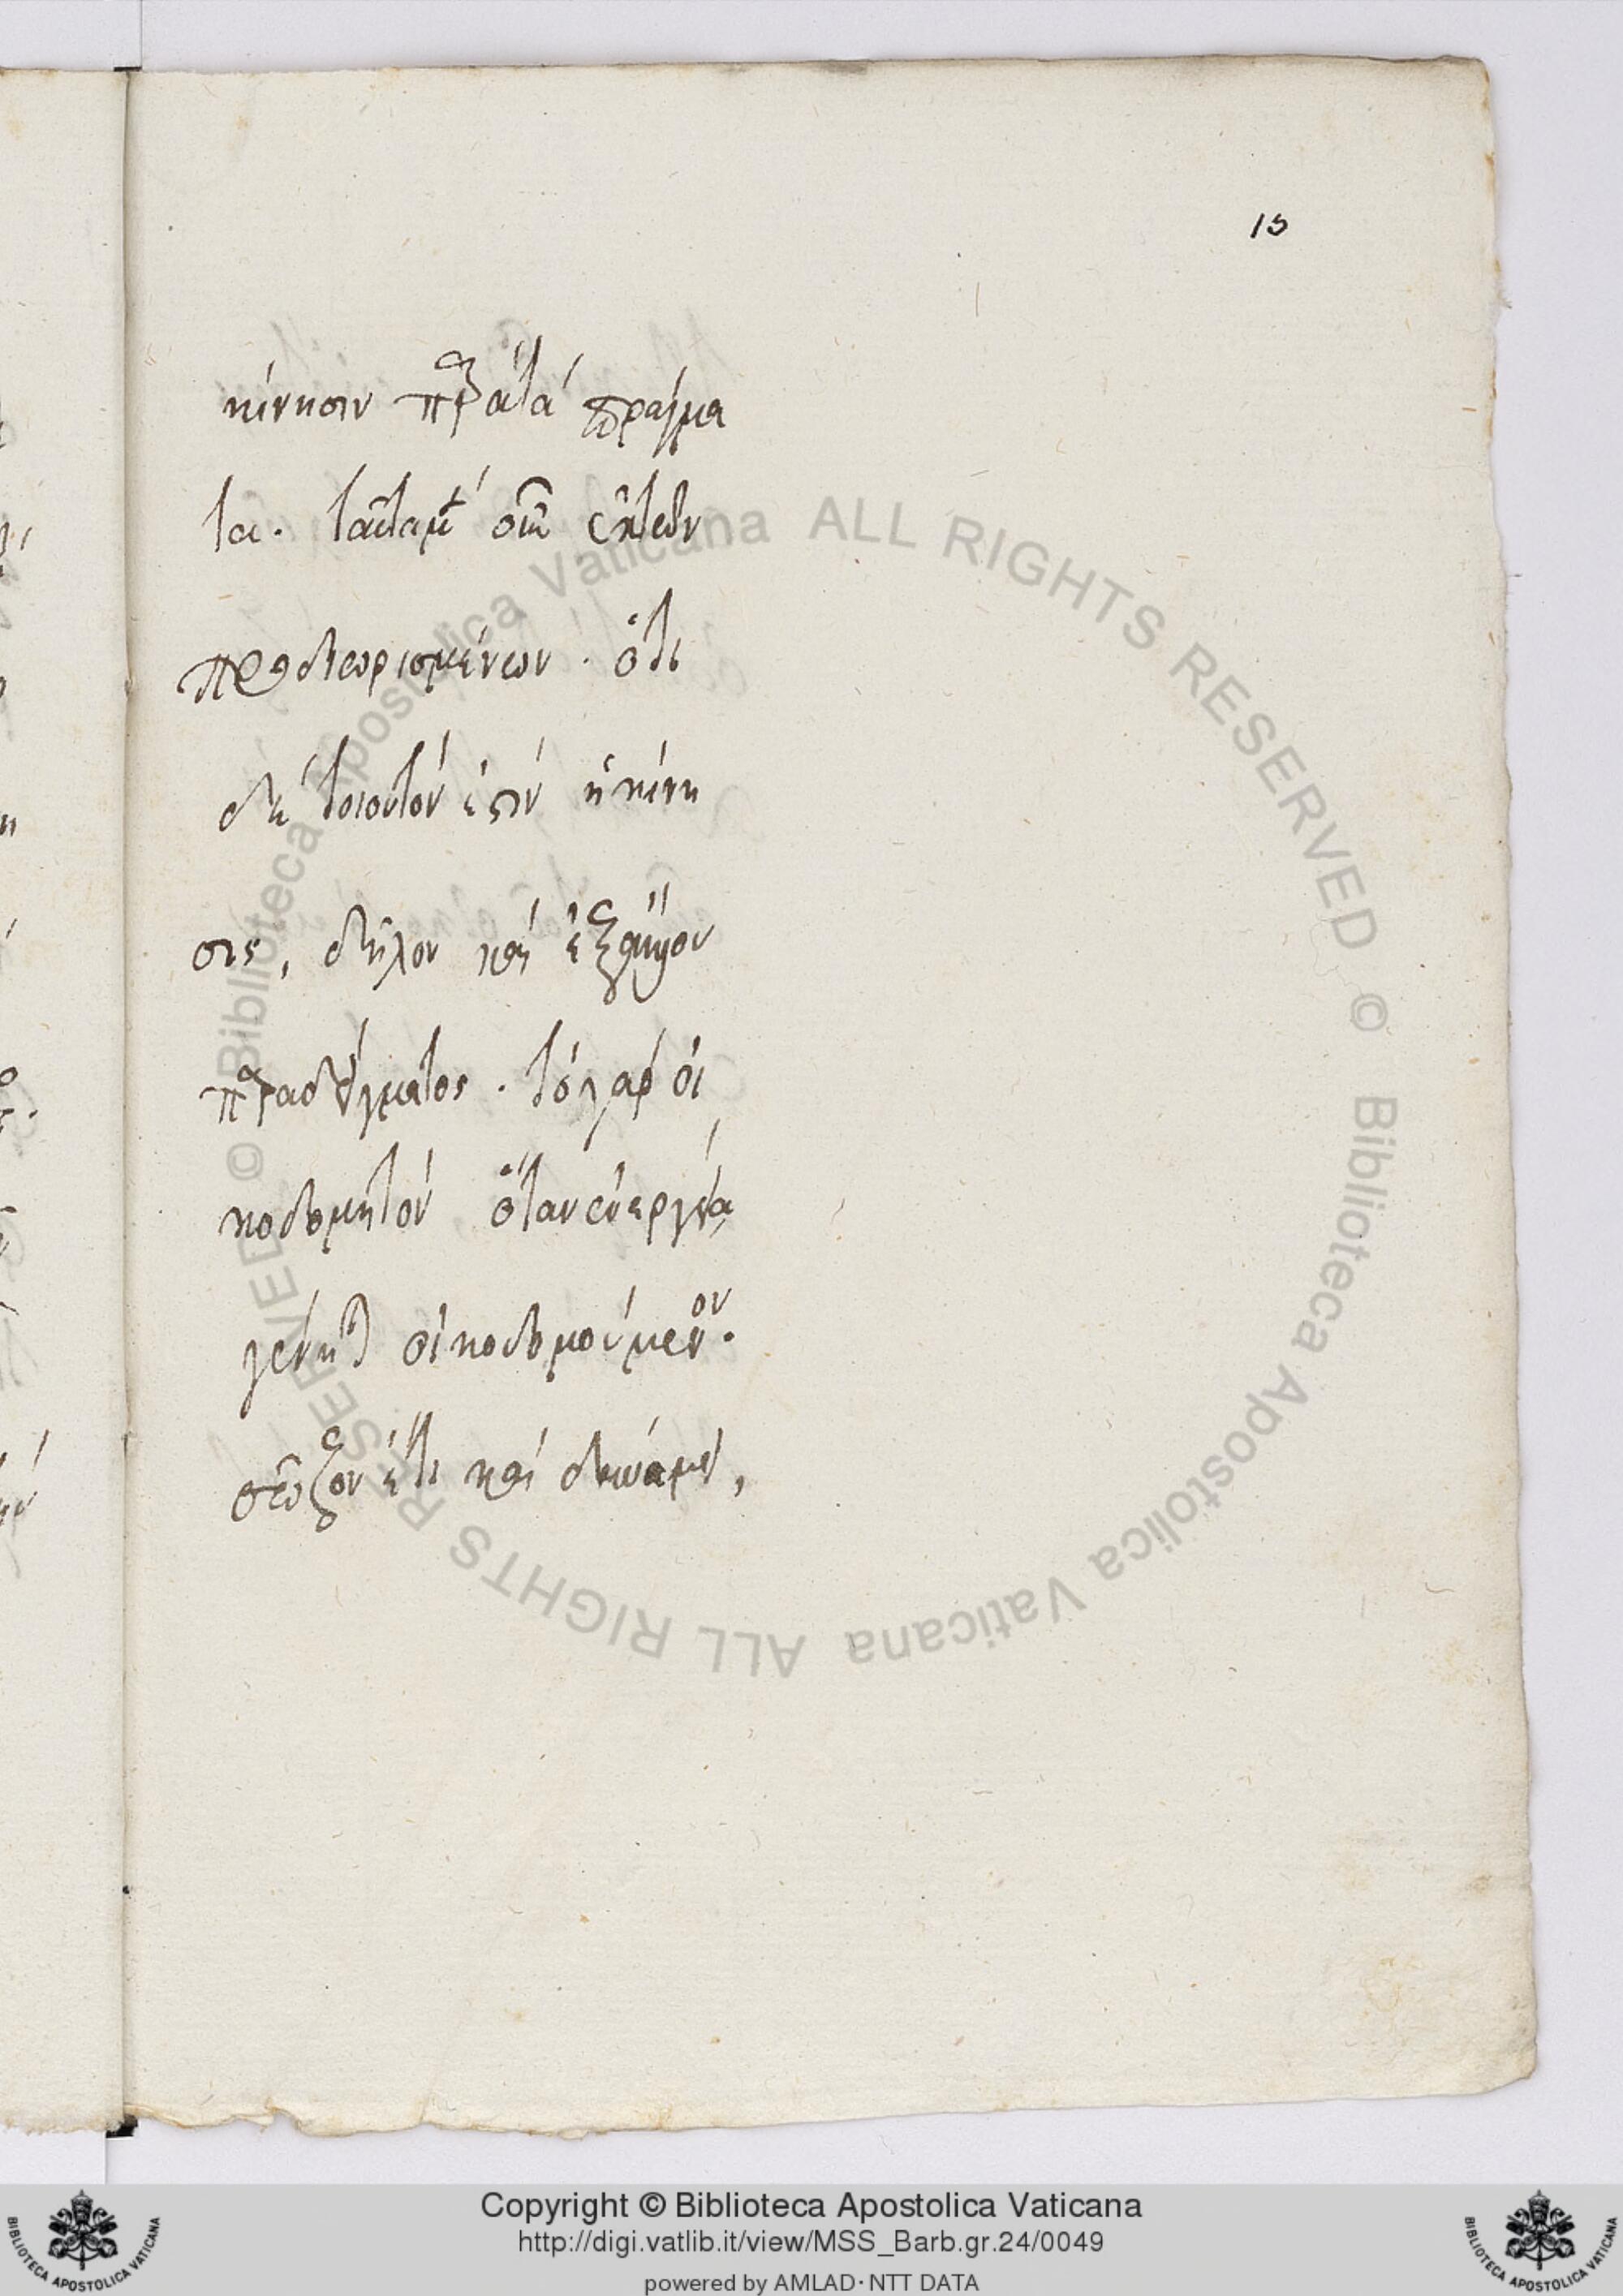 15
κίνησιν παρὰ τὰ πράγμα
τα. ταῦτα μὲν οὖν ἐκ τῶν
προδιωρισμένων. ὅτι
δὲ τοιοῦτόν ἐστιν ἡ κίνη
σις, δῆλον καὶ ἐξ
παραδείγματος. τὸ γὰρ οἰ
κοδομητὸν ὅταν ἐνεργείᾳ
γένηται οἰκοδομούμενον.
σῶζον ἔτι καὶ δυνάμει,
© Biblioteca Apostolica Vaticana ALL RIGHTS RESERVED © Biblioteca Apostolica Vaticana ALL RIGHTS RESERVED
Copyright © Biblioteca Apostolica Vaticana
http://digi.vatlib.it/view/MSS_Barb.gr.24/0049
powered by AMLAD·NTT DATA
BIBLIOTECA APOSTOLICA VATICANA
BIBLIOTECA APOSTOLICA VATICANA